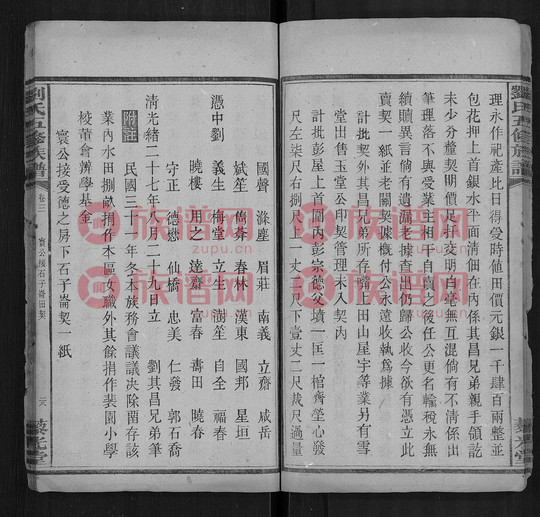 理永作祀產比日得受時值田價元銀一千肆百兩整並
包花押上首銀水平面清個在內係其昌兄弟親手領訖
未少分釐契明價足扑交明白毫無互混倘有不清係出
筆理落不與受業主相干自賣之後任公更名輸稅永無
續贖異言倘有遺漏老據查出仍歸公收今欲有憑立此
賣契一紙並老關契據概付公永遠收執為據
計批契外其昌兄弟所存瓚公陸田山屋宇等業另有雪
堂出售玉堂公印契管理未入契內
計批彭屋上首圍內彭宗德父墳一匡一棺齊塋心發
尺左柒尺右捌尺上一丈二尺下壹丈二尺裁尺過量
國聲 滌塵 眉莊 南義 立齋 咸岳
斌笙 雋茶 春林 漢東 國邦 星垣
憑中劉 義生 梅堂 立生 澍笙 自全 福春
曉樓 用之 達齋 富春 壽田 曉春
守正 德懋 仙橋 忠美 仁發 郭石喬
清光緒二十七年八月二十九日立 劉其昌兄弟筆
附註 民國三十一年冬本族務會議議決除留存該
業內水田捌畝捐作本區女職外其餘捐作裴園小學
校董會辦學基金
寰公接受德之房下石子崙契一紙
劉氏五修族譜
卷三
寰公接石子崙田契
藜光堂
劉氏五修族譜
藜光堂
族谱网
zupu.cn
族谱网
zupu.cn
族谱网
zupu.cn
族谱网
zupu.cn